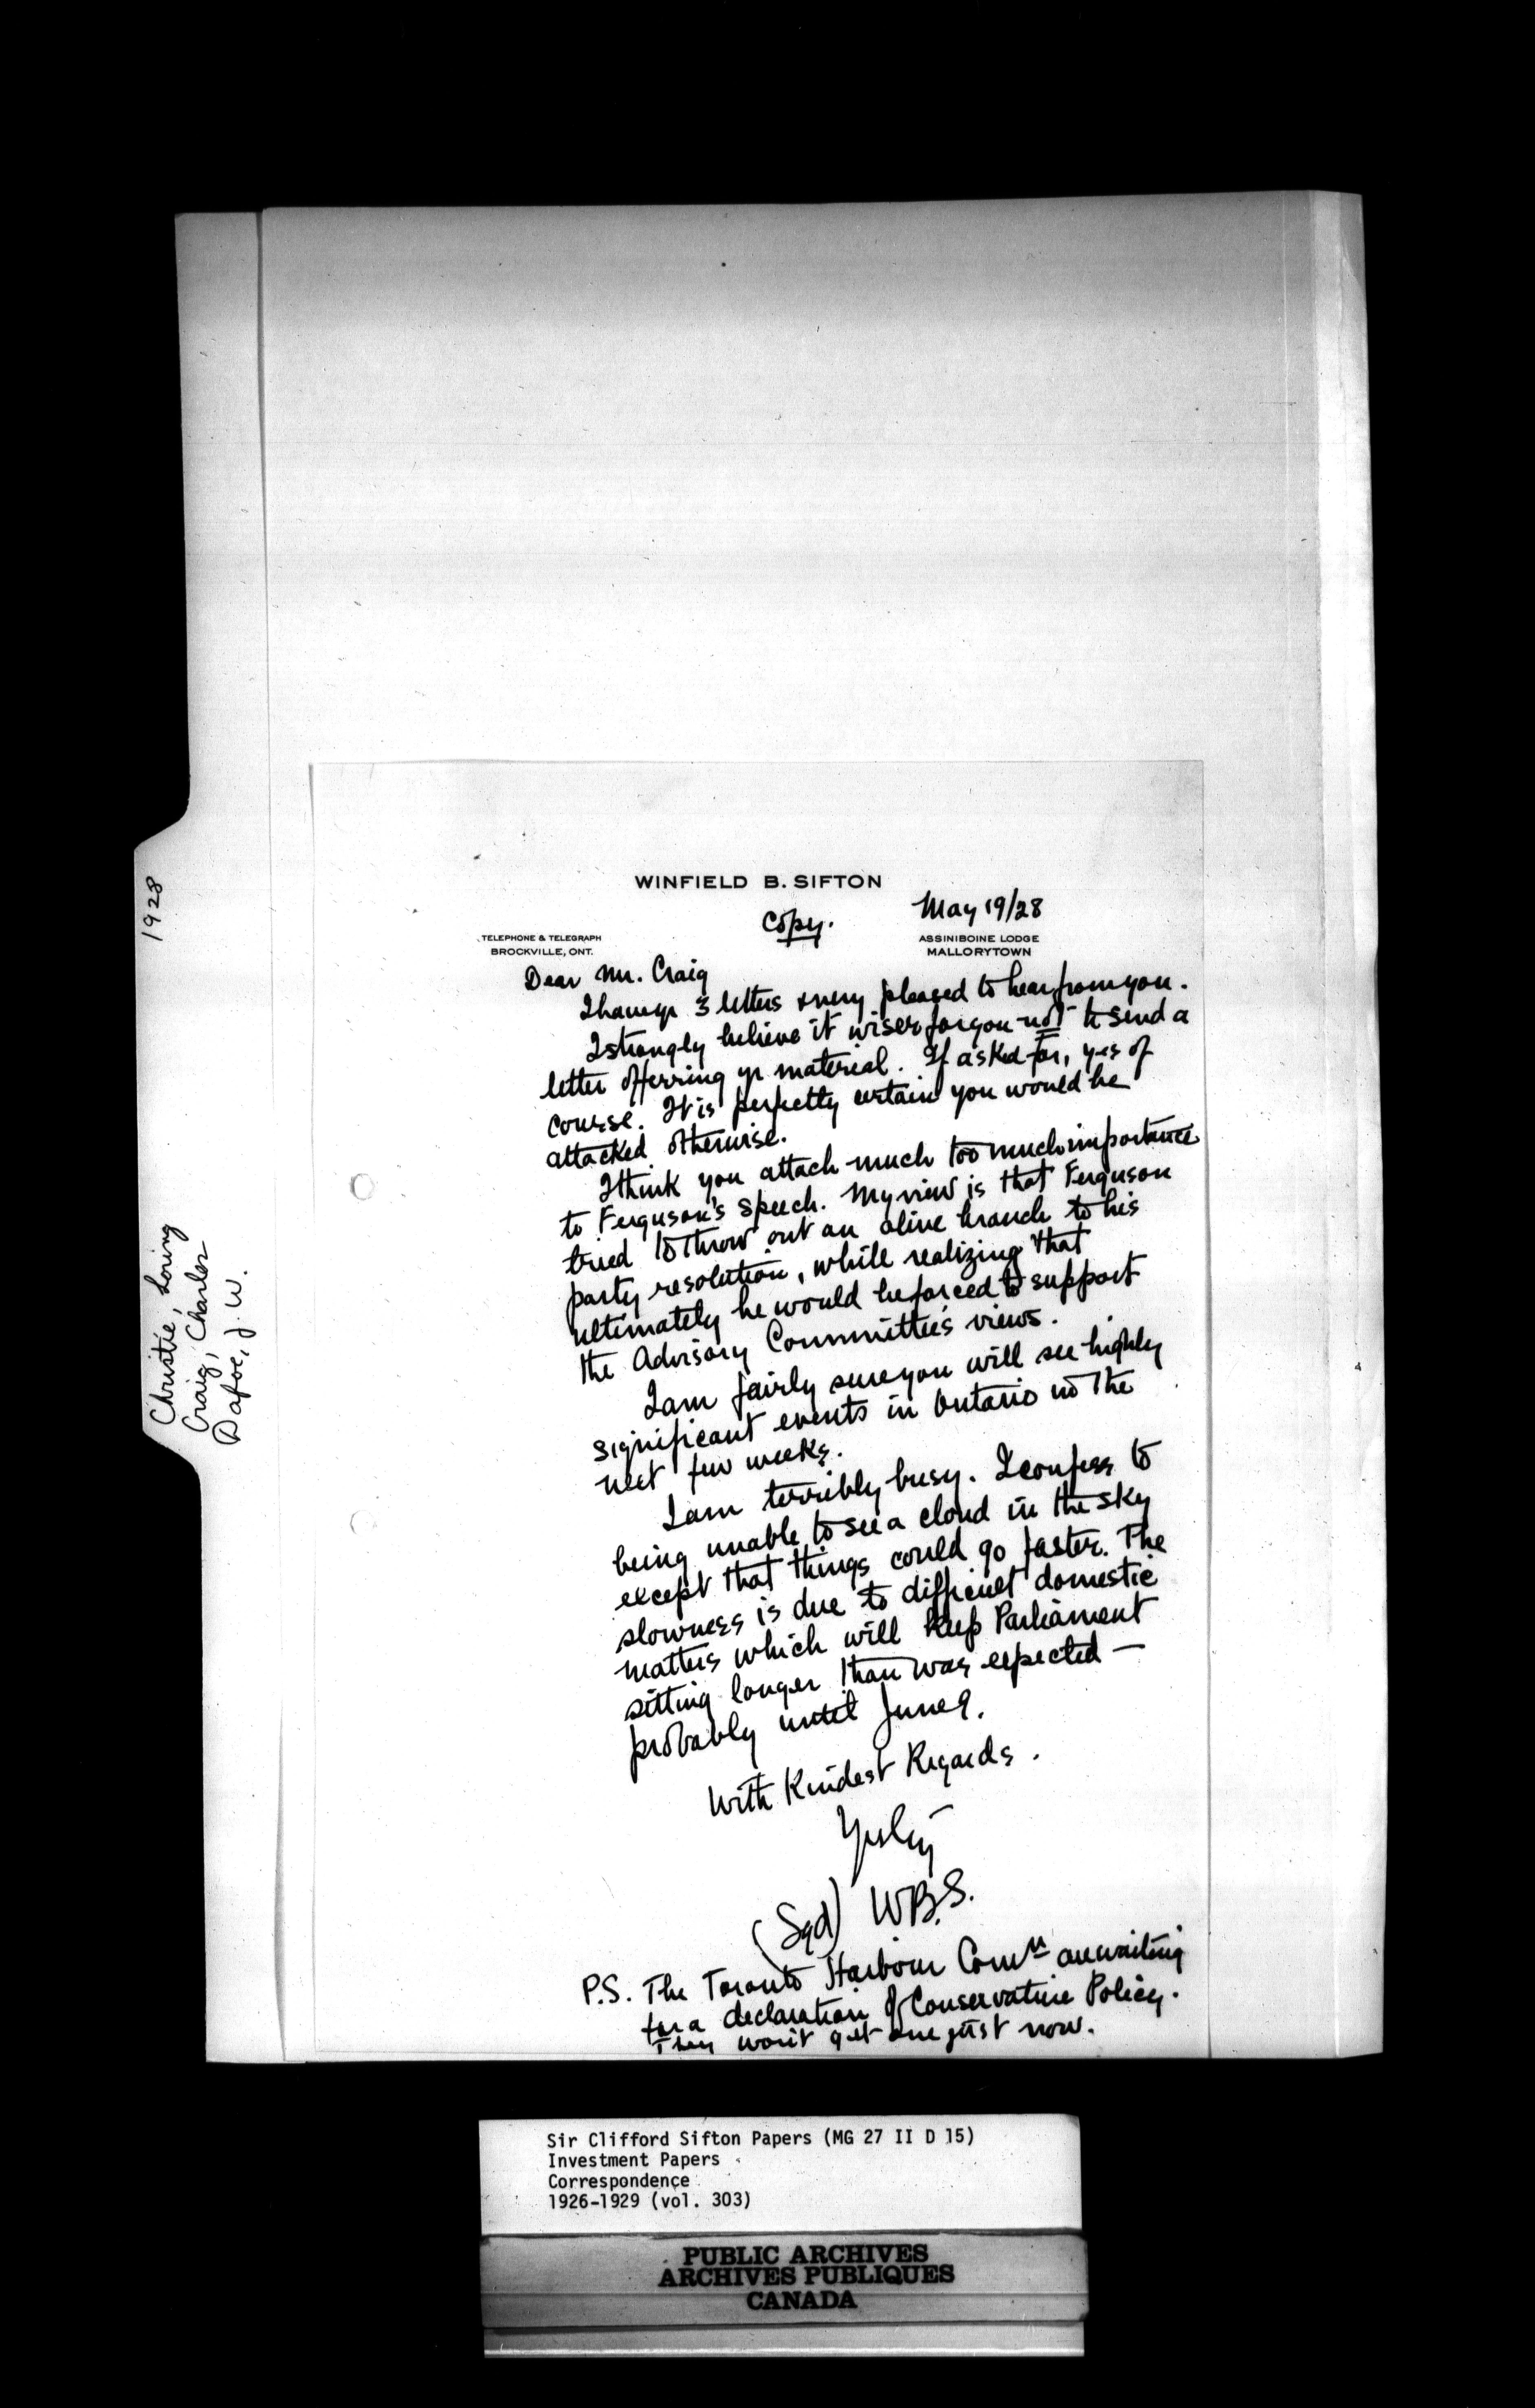 1928
Christie, Loring
Craig, Charles
Dafoe, J. W.
WINFIELD B. SIFTON
Copy.
May 19/28
TELEPHONE & TELEGRAPH
BROCKVILLE, ONT.
ASSINIBOINE LODGE
MALLORYTOWN
Dear Mr. Craig
I have yr 3 letters & very pleased to hear from you.
I strongly believe it wiser for you not to send a
letter offerring yr material. If asked for, yes of
course. It is perfectly certain you would be
attacked otherwise.
I think you attach much too much importance
to Ferguson's speech. My view is that Ferguson
tried to throw out an olive branch to his
party resolution, while realizing that
ultimately he would be forced to support
the Advisory Committee's views.
I am fairly sure you will see highly
significant events in Ontario in the
next few weeks.
I am terribly busy. I confess to
being unable to see a cloud in the sky
except that things could go faster. The
slowness is due to difficult domestic
matters which will keep Parliament
sitting longer than was expected —
probably until June 9.
With Kindest Regards.
(Sgd) W.B.S.
P.S. The Toronto Harbour Comn are waiting
for a declaration of Conservative Policy.
They won't get one just now.
Sir Clifford Sifton Papers (MG 27 II D 15)
Investment Papers
Correspondence
1926-1929 (vol. 303)
PUBLIC ARCHIVES
ARCHIVES PUBLIQUES
CANADA